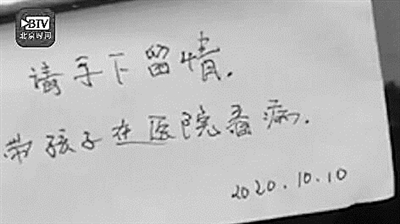 BTV
北京时间
请手下留情.
带孩子在医院看病.
2020.10.10